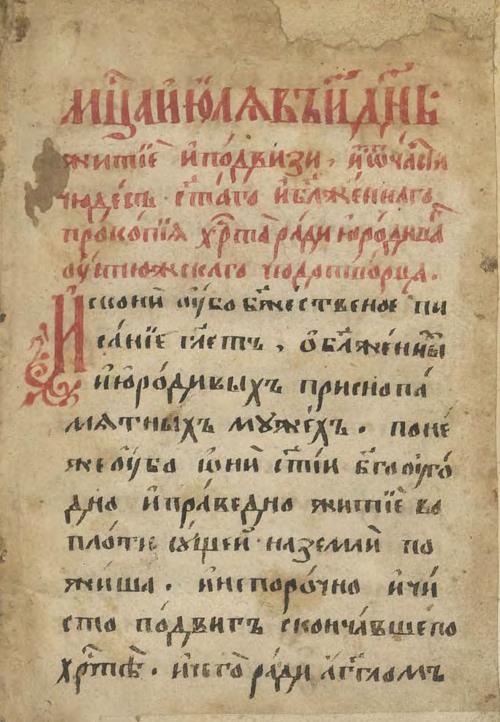 Мц҃а ию҆лѧ въ и҃ дн҃ь
житїе и҆ по́двизи, и҆ ѿча́сти
чюде́съ ст҃а́го и҆ бл҃же́ннаго
проко́пїѧ хрⷭ҇та̀ ра́ди юро́диваⷢ҇
оу҆́стюжскаго чюдотво́рца.
И҆скони оу҆́бо бж҃е́ственое пи
са́нїе гл҃етъ, о бл҃же́нныⷯ
и҆ юро́дивыхъ приснопа́
мѧтныхъ му́жехъ. поне́
же оу҆́бо ѡ҆ни ст҃і́и бг҃оуго́
дно и҆ пра́ведно житїе во
пло́ти су́щей на земли̂ по
жиша. и҆ непоро́чно и҆ чи́
сто по́двигъ сконча́вше по
хрⷭ҇тѣ̀. и҆ чего̀ ра́ди а҆́гг҃ломъ